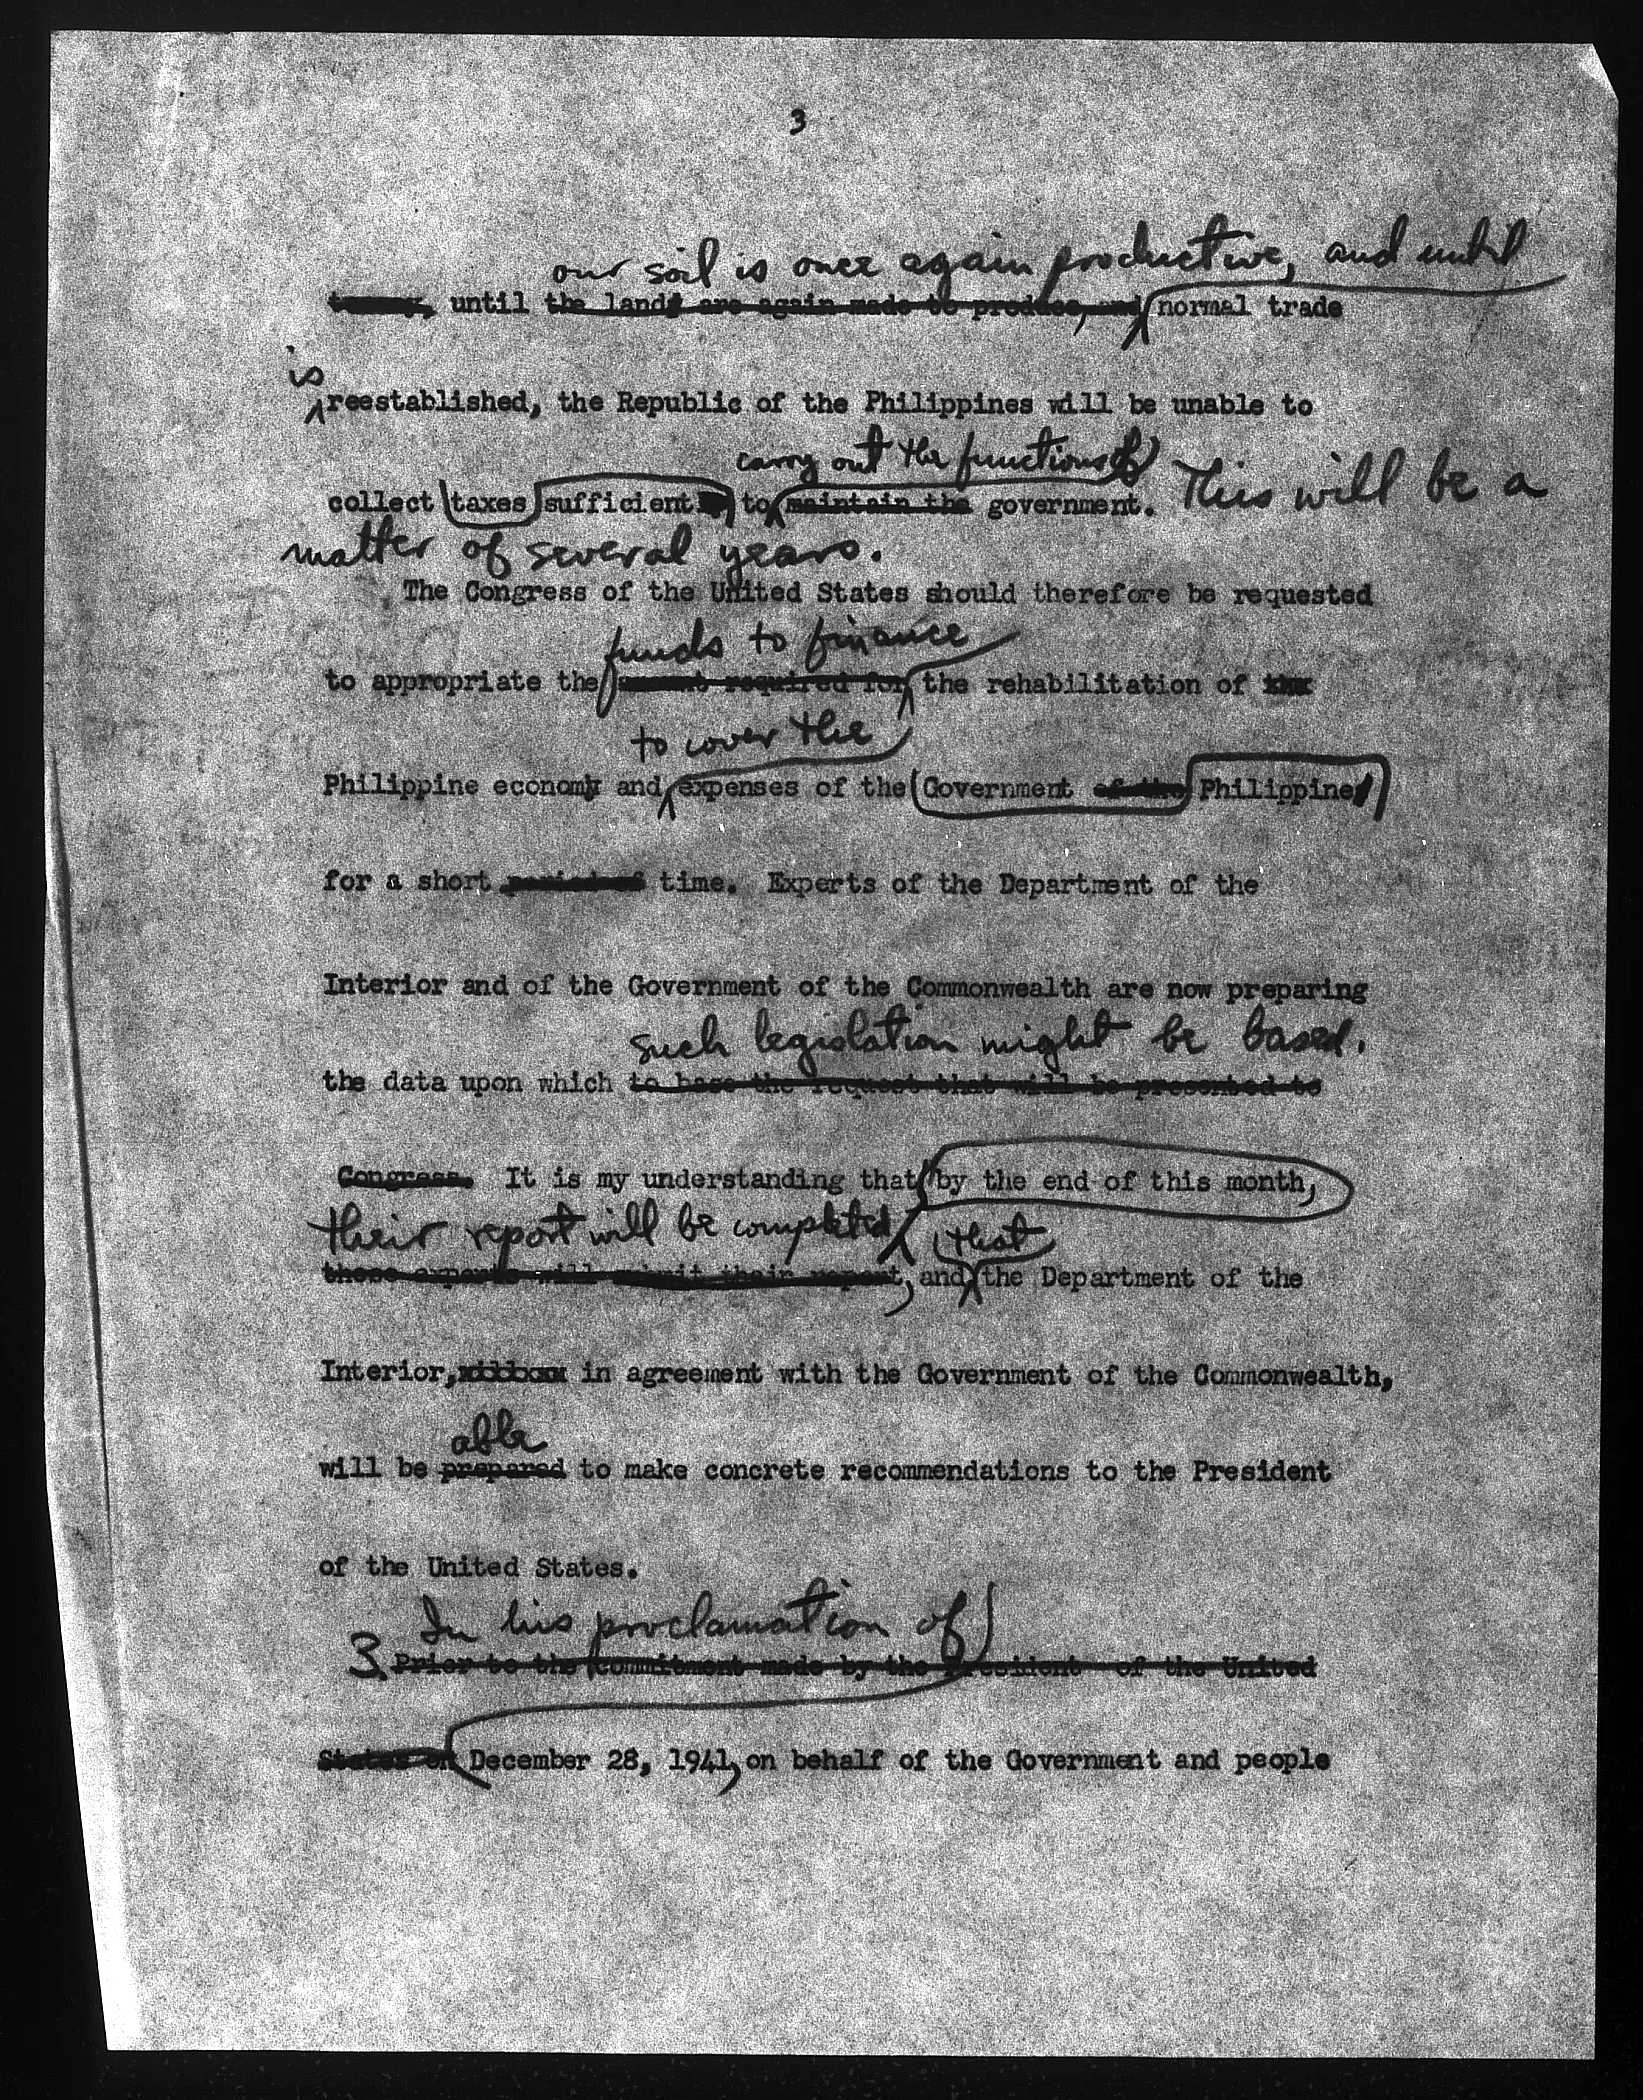 3
our soil is once again productive, and until
until the lands are again made to produce, and normal trade
is
reestablished, the Republic of the Philippines will be unable to
carry out the functions of
collect taxes sufficient to maintain the government. This will be a
matter of several years.
The Congress of the United States should therefore be requested
funds to finance
to appropriate the amount required for the rehabilitation of
to cover the
Philippine economy and expenses of the Government of the Philippine
for a short period of time. Experts of the Department of the
Interior and of the Government of the Commonwealth are now preparing
such legislation might be based.
the data upon which to base the request that will be presented to
Congress. It is my understanding that by the end of this month,
their report will be completed
that
these experts will submit their report, and the Department of the
Interior, in agreement with the Government of the Commonwealth,
able
will be prepared to make concrete recommendations to the President
of the United States.
In his proclamation of
3. Prior to the commitment made by the President of the United
States on December 28, 1941, on behalf of the Government and people